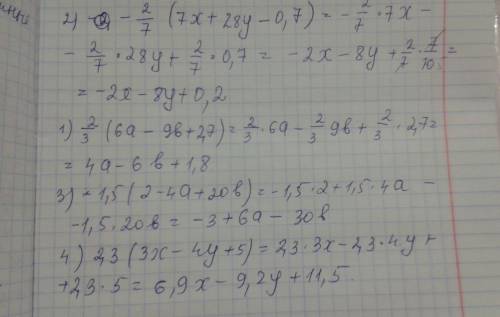 2) - 2/7 (7x + 28y - 0,7) = - 2/7 · 7x -
- 2/7 · 28y + 2/7 · 0,7 = - 2x - 8y + 2/7 · 7/10 =
= - 2x - 8y + 0,2
1) 2/3 (6a - 9b + 2,7) = 2/3 · 6a - 2/3 9b + 2/3 · 2,7 =
= 4a - 6b + 1,8
3) - 1,5 (2 - 4a + 20b) = -1,5 · 2 + 1,5 · 4a -
- 1,5 · 20b = - 3 + 6a - 30b
4) 2,3 (3x - 4y + 5) = 2,3 · 3x - 2,3 · 4y +
+ 2,3 · 5 = 6,9x - 9,2y + 11,5